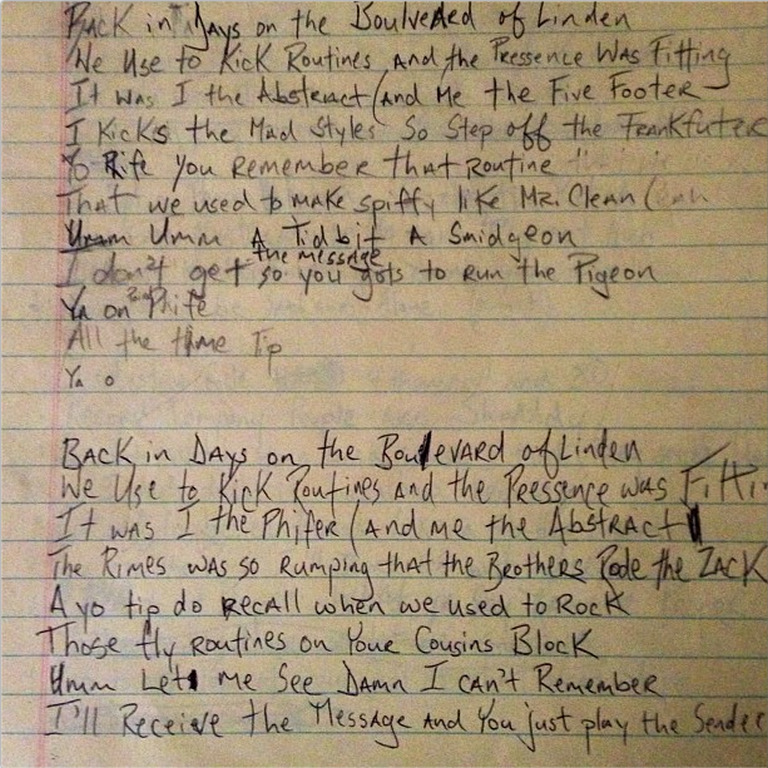 Back in Days on the Boulveard of Linden
We Use to Kick Routines And the Pressence Was Fitting
It was I the Abstract (And Me the Five Footer
I Kicks the Mad Styles So Step off the Frankfuter
Yo Phife you Remember that Routine
That we used to make spiffy like Mr. Clean (
Umm Umm A Tidbit A Smidgeon
the message
I don't get so you gots to Run the Pigeon
Ya on Phife
All the time Tip
Ya o
Back in Days on the Boulevard of Linden
We Use to Kick Routines And the Pressence was Fittin
It was I the Phifer (And me the Abstract
The Rimes was so Rumping that the Brothers Rode the Zack
A yo tip do Recall when we used to Rock
Those fly Routines on Your Cousins Block
Umm Let me See Damn I can't Remember
I'll Receive the Message And You just play the Sender